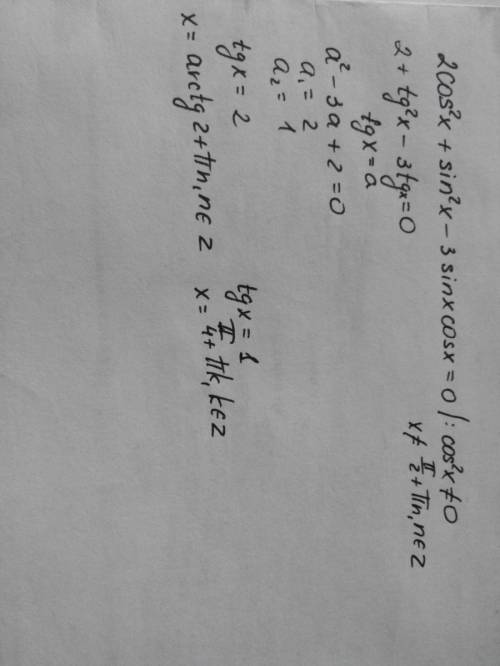 2cos²x + sin²x - 3 sinx cosx = 0 /: cos²x ≠ 0
x ≠ π/2 + πn, n∈z
2 + tg²x - 3tgx = 0
tgx = a
a² - 3a + 2 = 0
a₁ = 2
a₂ = 1
tgx = 2 tgx = 1
x = arctg 2 + πn, n∈z x = π/4 + πk, k∈z